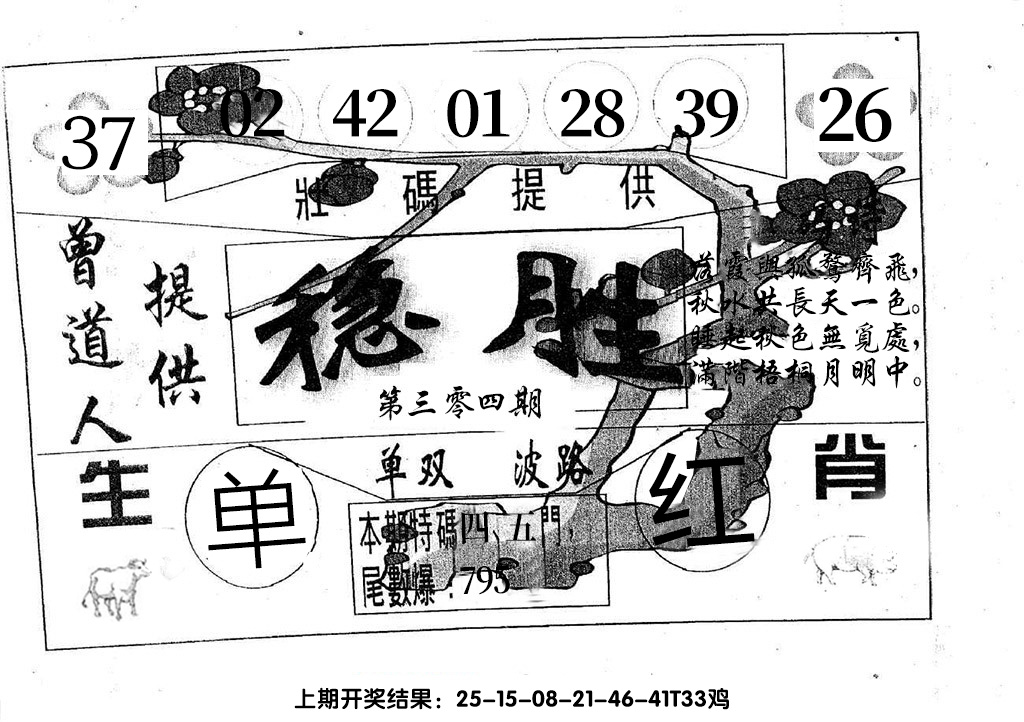 37 02 42 01 28 39 26
壯碼提供
曾道人
提供
稳胜
第三零四期
落霞與孤騖齊飛，
秋水共長天一色。
睡起秋色無覓處，
滿階梧桐月明中。
单双 波路
生 单 红 肖
本期特碼四、五門，
尾數爆：795
上期开奖结果：25-15-08-21-46-41T33鸡